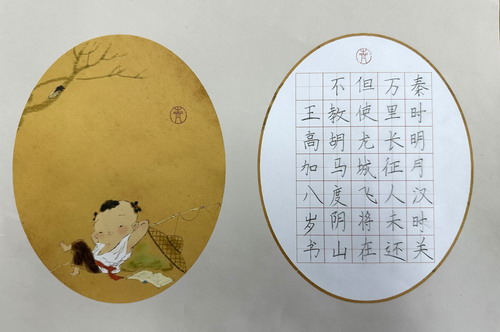 秦时明月汉时关
万里长征人未还
但使龙城飞将在
不教胡马度阴山
王高加八岁书